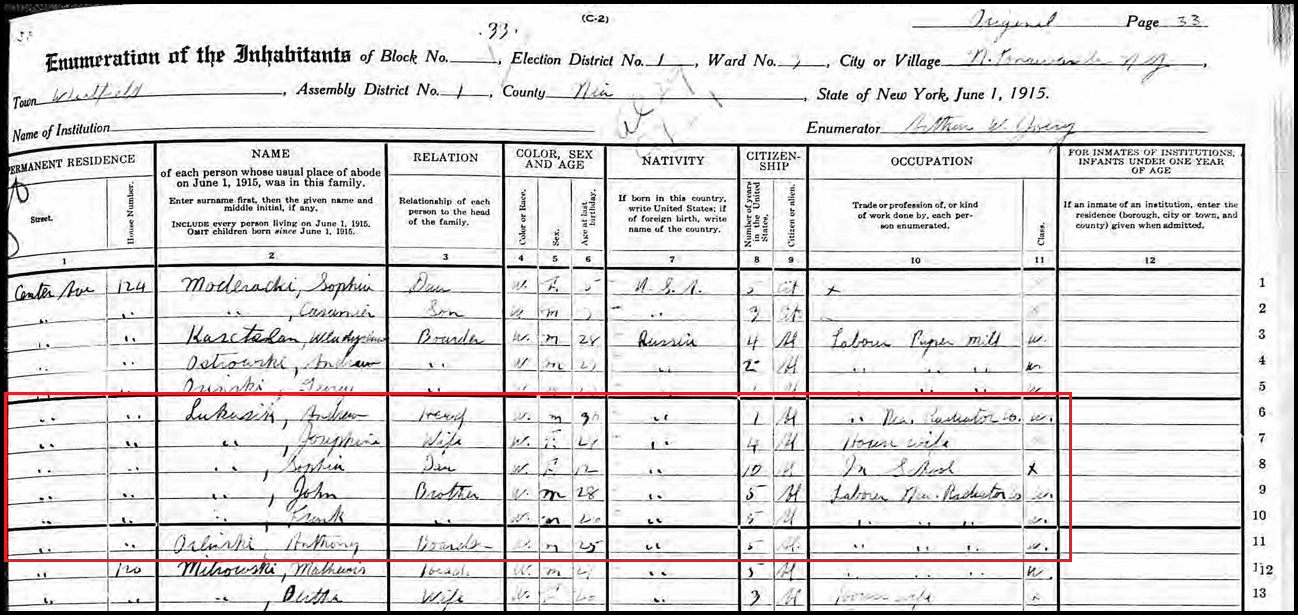 (C-2)
33.
Original Page 33
Enumeration of the Inhabitants of Block No. , Election District No. 1 , Ward No. , City or Village N. Tonawanda N Y ,
Town Wheatfield , Assembly District No. 1 , County Nia , State of New York, June 1, 1915.
Name of Institution Enumerator Arthur W.
PERMANENT RESIDENCE
Street.
House Number.
NAME
of each person whose usual place of abode
on June 1, 1915, was in this family.
Enter surname first, then the given name and
middle initial, if any.
INCLUDE every person living on June 1, 1915.
OMIT children born since June 1, 1915.
RELATION
Relationship of each
person to the head
of the family.
COLOR, SEX
AND AGE
Color or Race.
Sex.
Age at last
birthday.
NATIVITY
If born in this country,
write United States; if
of foreign birth, write
name of the country.
CITIZEN-
SHIP
Number of years
in the United
States.
Citizen or alien.
OCCUPATION
Trade or profession of, or kind
of work done by, each per-
son enumerated.
Class.
FOR INMATES OF INSTITUTIONS,
INFANTS UNDER ONE YEAR
OF AGE
If an inmate of an institution, enter the
residence (borough, city or town, and
county) given when admitted.
1 2 3 4 5 6 7 8 9 10 11 12
Center Ave 124 Moderacki, Sophia Dau W. F 5 U.S.A. 5 Cit x 1
" " " , Casamier Son W m " Cit 2
" " Boarder W. m 28 Russia 4 Al Labour Paper mill w. 3
" " Ostrowski, Andrew " W m " 2 Al " " " w. 4
" " 5
" " Lukasik, Andrew Head W. m " 1 Al " Radiator Co. w. 6
" " " , Josephine Wife W. F " 4 Al House wife 7
" " " , Sophia Dau W. F 12 " 10 Al In School x 8
" " " , John Brother W. m 28 " 5 Al Labour Radiator Co w. 9
" " " , Frank " W. m " 5 Al " " " w. 10
" " Oslinski, Anthony Boarder W. m 25 " 5 Al. " " " w. 11
" 120 Mitrowski, Head W. m " 5 Al " " " w. 12
" " " , Bertha Wife W. F " 3 Al House wife 13